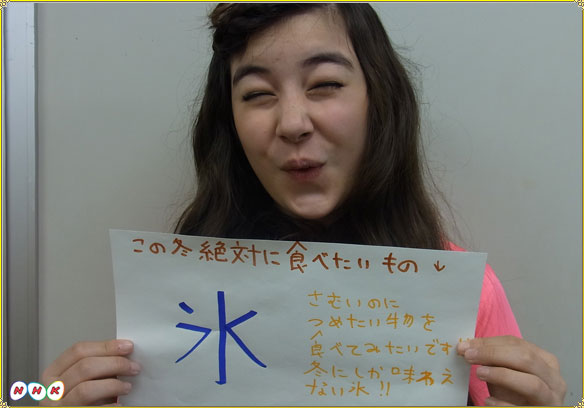 この冬絶対に食べたいもの↓
氷
さむいのに
つめたい物を
食べてみたいです!
冬にしか味わえ
ない氷!!
NHK